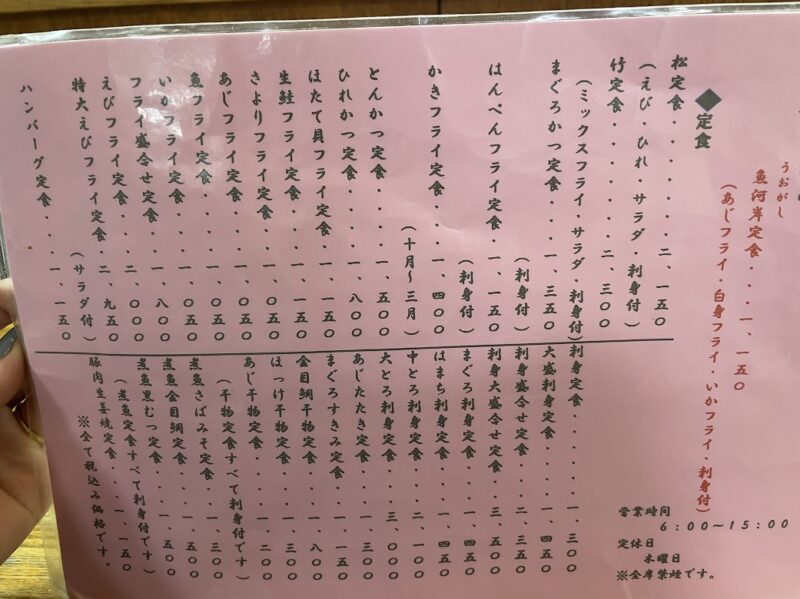 うおがし
魚河岸定食・・・一、一五〇
(あじフライ・白身フライ・いかフライ・刺身付)
◆定食
松定食・・・・・・・・二、一五〇
(えび・ひれ・サラダ・刺身付)
竹定食・・・・・・・・二、三〇〇
(ミックスフライ・サラダ・刺身付)
まぐろかつ定食・・・一、三五〇
(刺身付)
はんぺんフライ定食・一、一五〇
(刺身付)
かきフライ定食・・・一、四〇〇
(十月〜三月)
とんかつ定食・・・・一、五〇〇
ひれかつ定食・・・・一、八〇〇
ほたて貝フライ定食・一、〇〇〇
生鮭フライ定食・・・一、〇〇〇
さよりフライ定食・・一、〇五〇
あじフライ定食・・・一、〇〇〇
魚フライ定食・・・・一、〇五〇
いかフライ定食・・・一、〇五〇
フライ盛合せ定食・・一、八〇〇
えびフライ定食・・・二、〇〇〇
特大えびフライ定食・二、九五〇
(サラダ付)
ハンバーグ定食・・・一、一五〇
刺身定食・・・・・・一、三〇〇
大盛刺身定食・・・・一、四五〇
刺身盛合せ定食・・・二、三五〇
刺身大盛合せ定食・・三、五〇〇
まぐろ刺身定食・・・一、四五〇
はまち刺身定食・・・一、四五〇
中とろ刺身定食・・・二、一〇〇
大とろ刺身定食・・・三、〇〇〇
あじたたき定食・・・一、三〇〇
まぐろすきみ定食・・一、一五〇
金目鯛干物定食・・・一、八〇〇
ほっけ干物定食・・・一、三〇〇
あじ干物定食・・・・一、二〇〇
(干物定食すべて刺身付です)
煮魚さばみそ定食・・一、三五〇
煮魚金目鯛定食・・・一、五〇〇
煮魚黒むつ定食・・・一、五〇〇
(煮魚定食すべて刺身付です)
豚肉生姜焼定食・・・一、一五〇
※全て税込み価格です。
営業時間
6:00〜15:00
定休日
木曜日
※全席禁煙です。